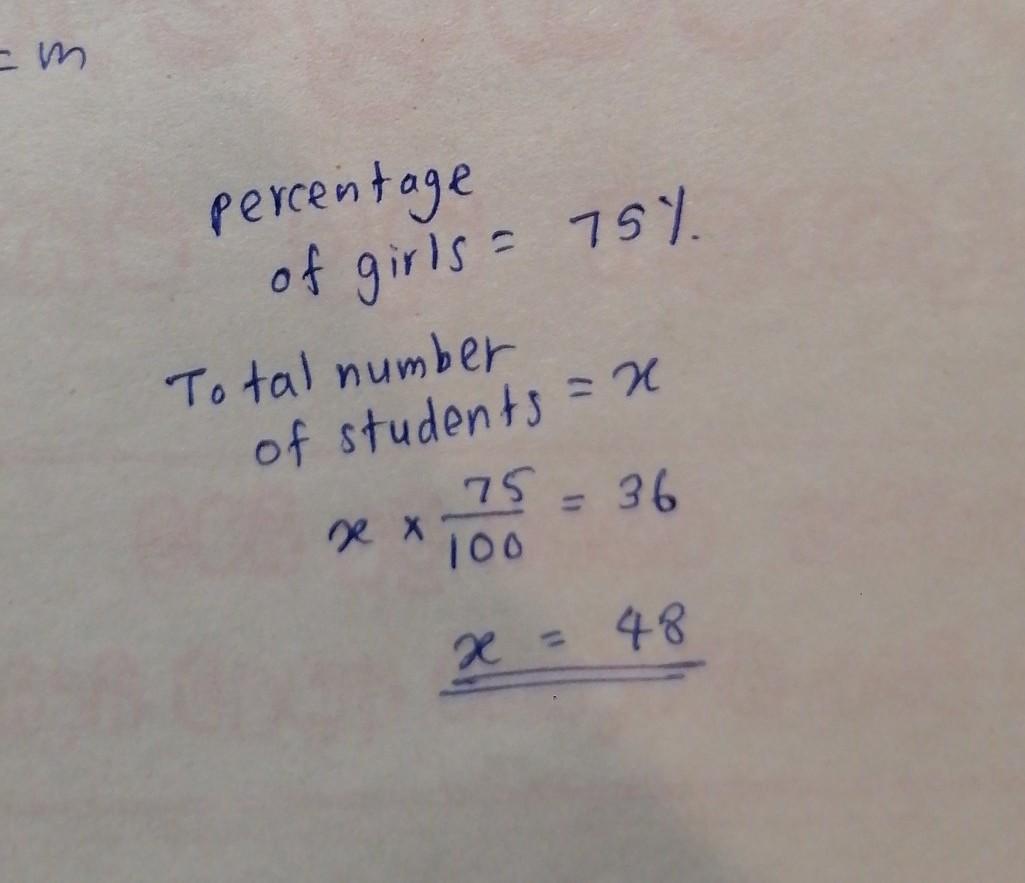 = m
percentage
of girls = 75%.
Total number
of students = x
x × 75/100 = 36
x = 48